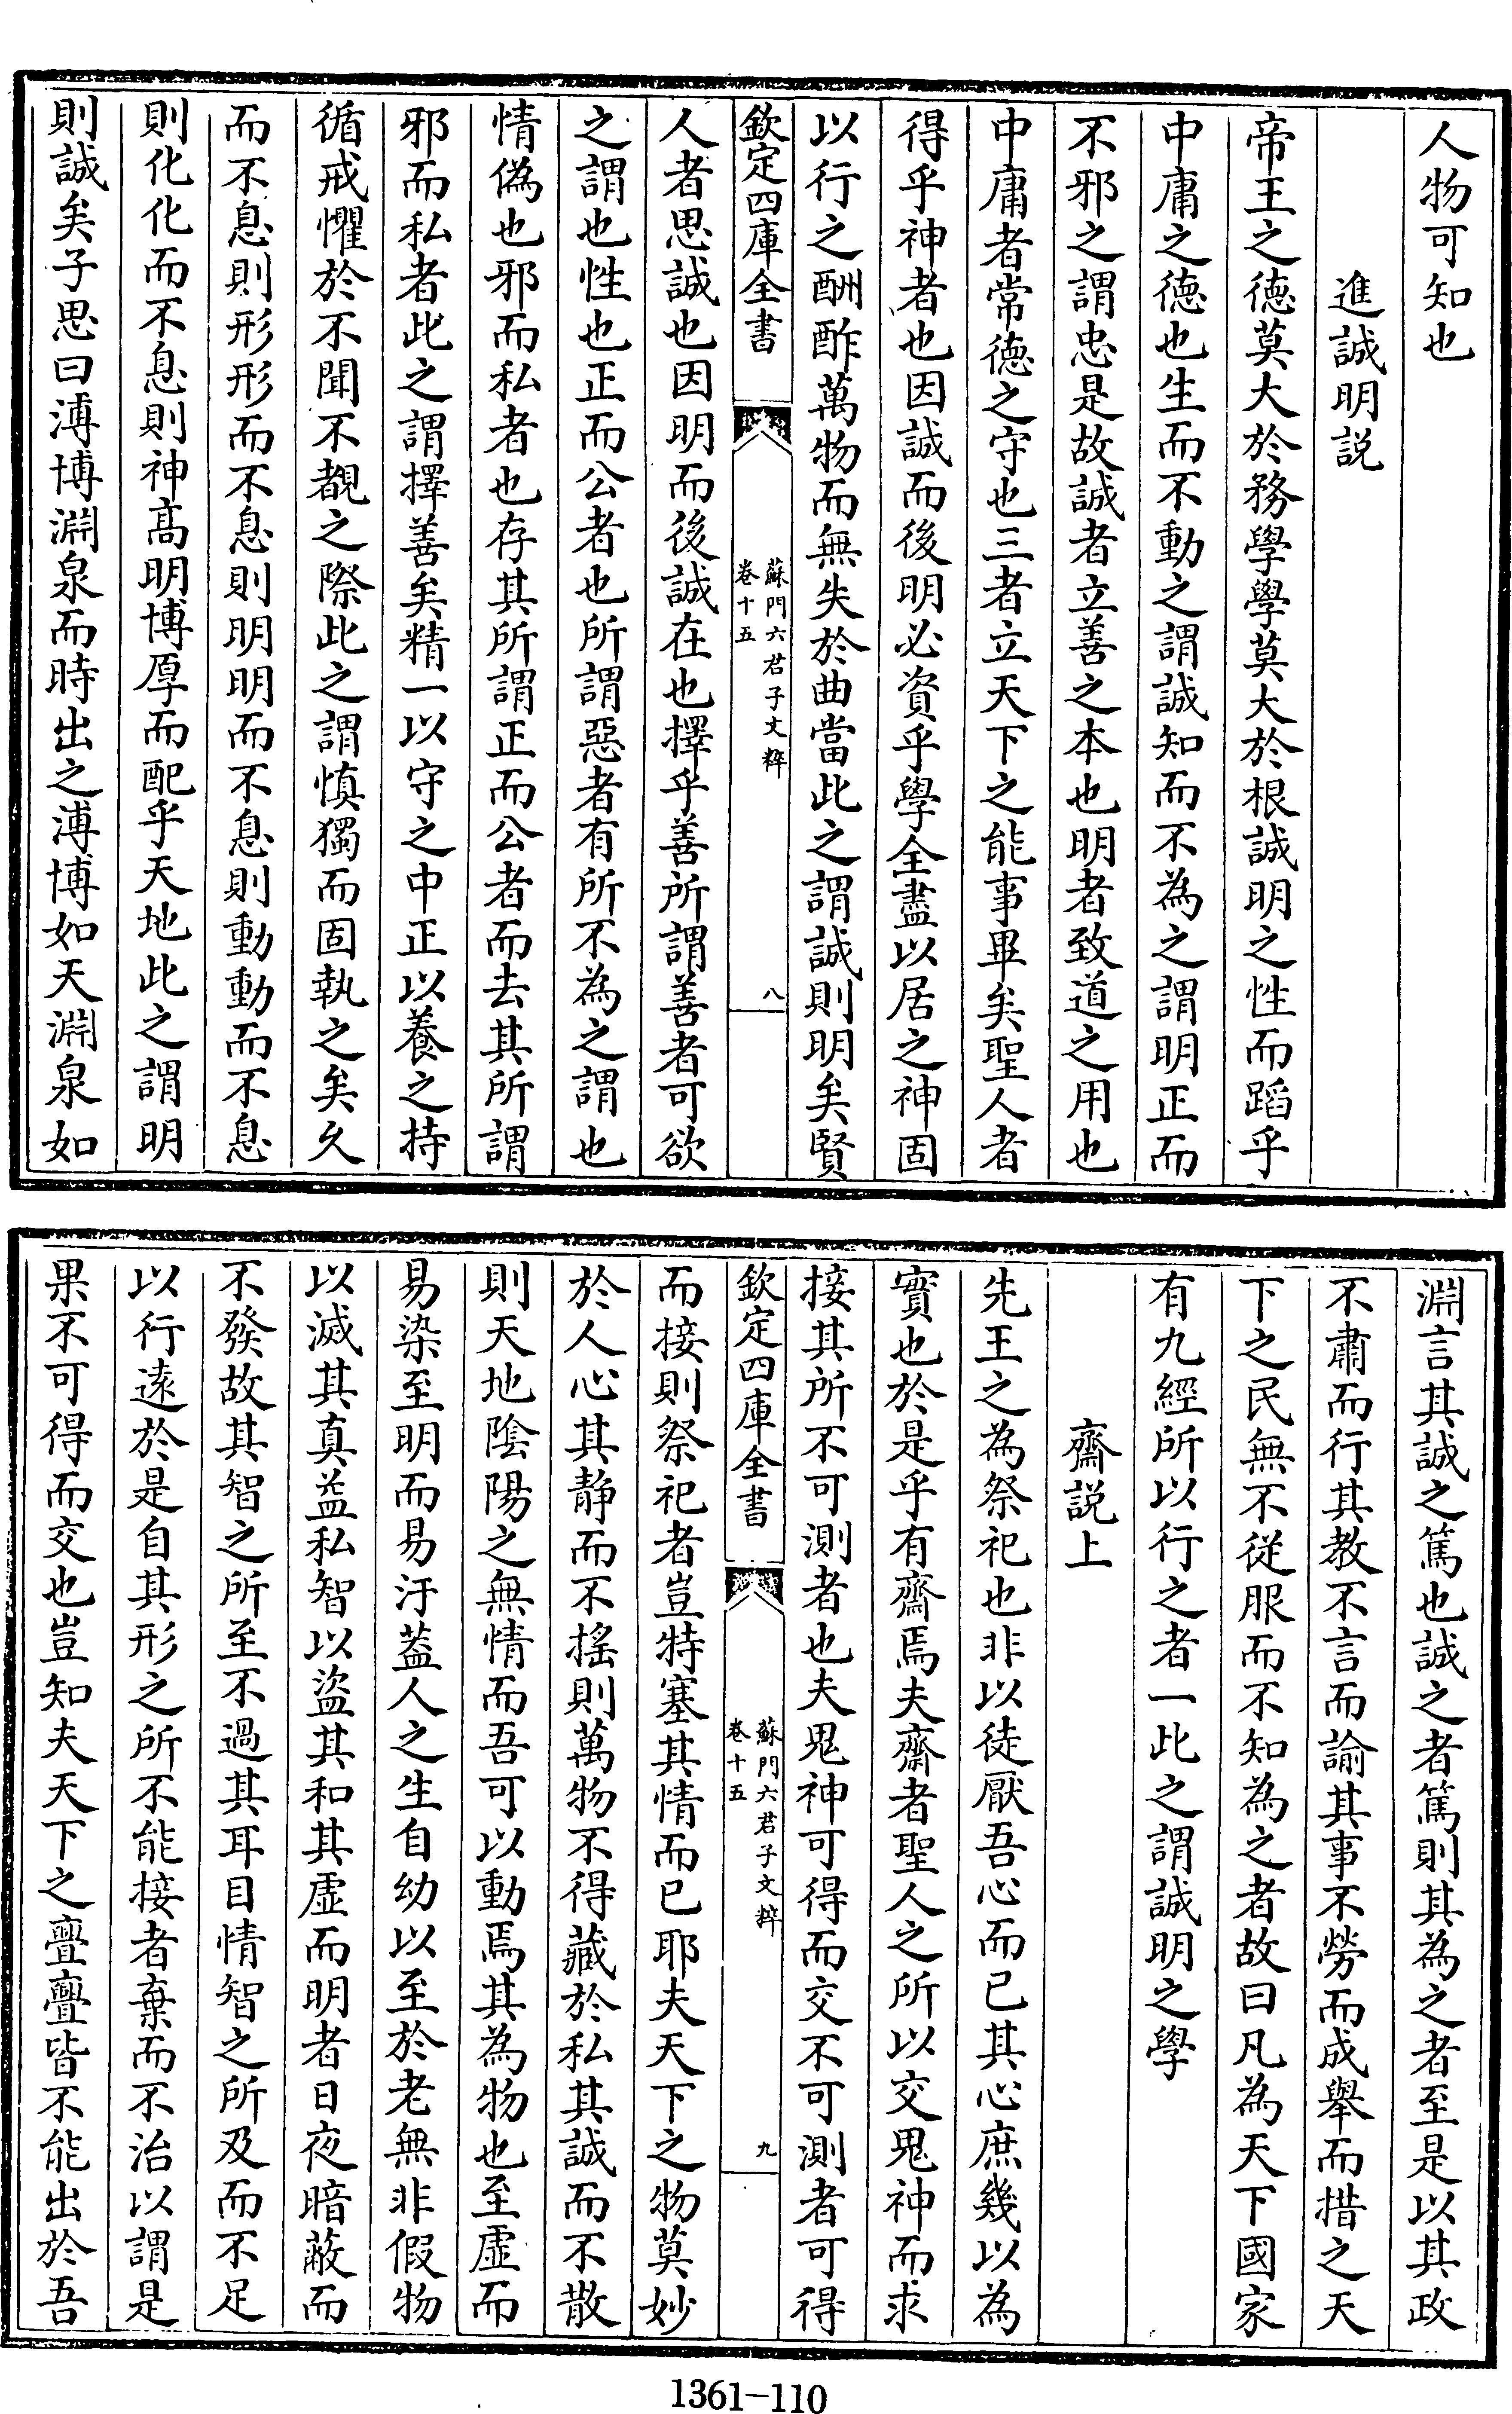 人物可知也
進誠明説
帝王之德莫大於務學學莫大於根誠明之性而蹈乎
中庸之德也生而不動之謂誠知而不為之謂明正而
不邪之謂忠是故誠者立善之本也明者致道之用也
中庸者常德之守也三者立天下之能事畢矣聖人者
得乎神者也因誠而後明必資乎學全盡以居之神固
以行之酬酢萬物而無失於曲當此之謂誠則明矣賢
欽定四庫全書
蘇門六君子文粹
卷十五
八
人者思誠也因明而後誠在也擇乎善所謂善者可欲
之謂也性也正而公者也所謂惡者有所不為之謂也
情偽也邪而私者也存其所謂正而公者而去其所謂
邪而私者此之謂擇善矣精一以守之中正以養之持
循戒懼於不聞不覩之際此之謂慎獨而固執之矣久
而不息則形形而不息則明明而不息則動動而不息
則化化而不息則神高明博厚而配乎天地此之謂明
則誠矣子思曰溥博淵泉而時出之溥博如天淵泉如
淵言其誠之篤也誠之者篤則其為之者至是以其政
不肅而行其教不言而諭其事不勞而成舉而措之天
下之民無不從服而不知為之者故曰凡為天下國家
有九經所以行之者一此之謂誠明之學
齋説上
先王之為祭祀也非以徒厭吾心而已其心庶幾以為
實也於是乎有齋焉夫齋者聖人之所以交鬼神而求
接其所不可測者也夫鬼神可得而交不可測者可得
欽定四庫全書
蘇門六君子文粹
卷十五
九
而接則祭祀者豈特塞其情而已耶夫天下之物莫妙
於人心其静而不搖則萬物不得藏於私其誠而不散
則天地陰陽之無情而吾可以動焉其為物也至虛而
易染至明而易汙葢人之生自幼以至於老無非假物
以滅其真益私智以盜其和其虛而明者日夜暗蔽而
不發故其智之所至不過其耳目情智之所及而不足
以行遠於是自其形之所不能接者棄而不治以謂是
果不可得而交也豈知夫天下之亹亹皆不能出於吾
1361-110